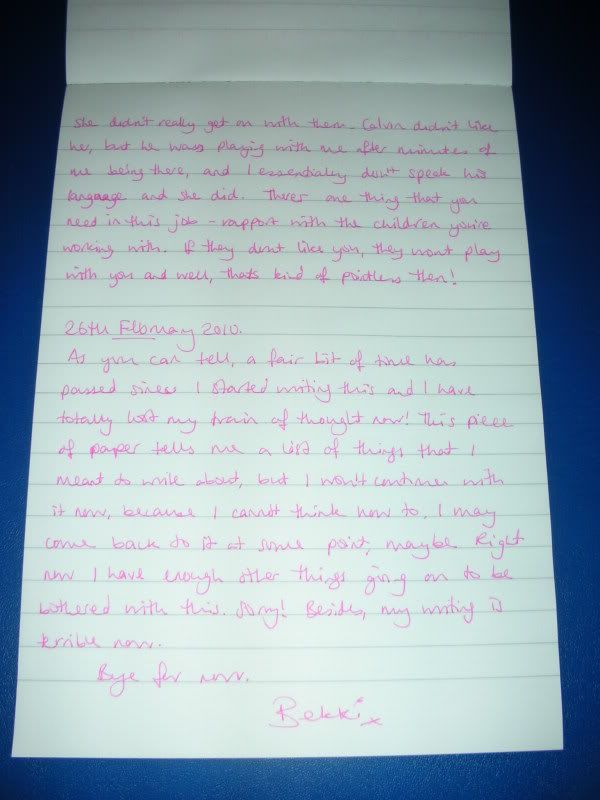 She didn't really get on with them. Calvin didn't like
her, but he was playing with me after minutes of
me being there, and I essentially don't speak his
language and she did. Theres one thing that you
need in this job - rapport with the children you're
working with. If they dont like you, they wont play
with you and well, thats kind of pointless then!
26th February 2010.
As you can tell, a fair bit of time has
passed since I started writing this and I have
totally lost my train of thought now! This piece
of paper tells me a list of things that I
meant to write about, but I won't continue with
it now, because I cannot think how to. I may
come back to it at some point, maybe. Right
now I have enough other things going on to be
bothered with this. Sorry! Besides, my writing is
terrible now.
Bye for now.
Bekki x